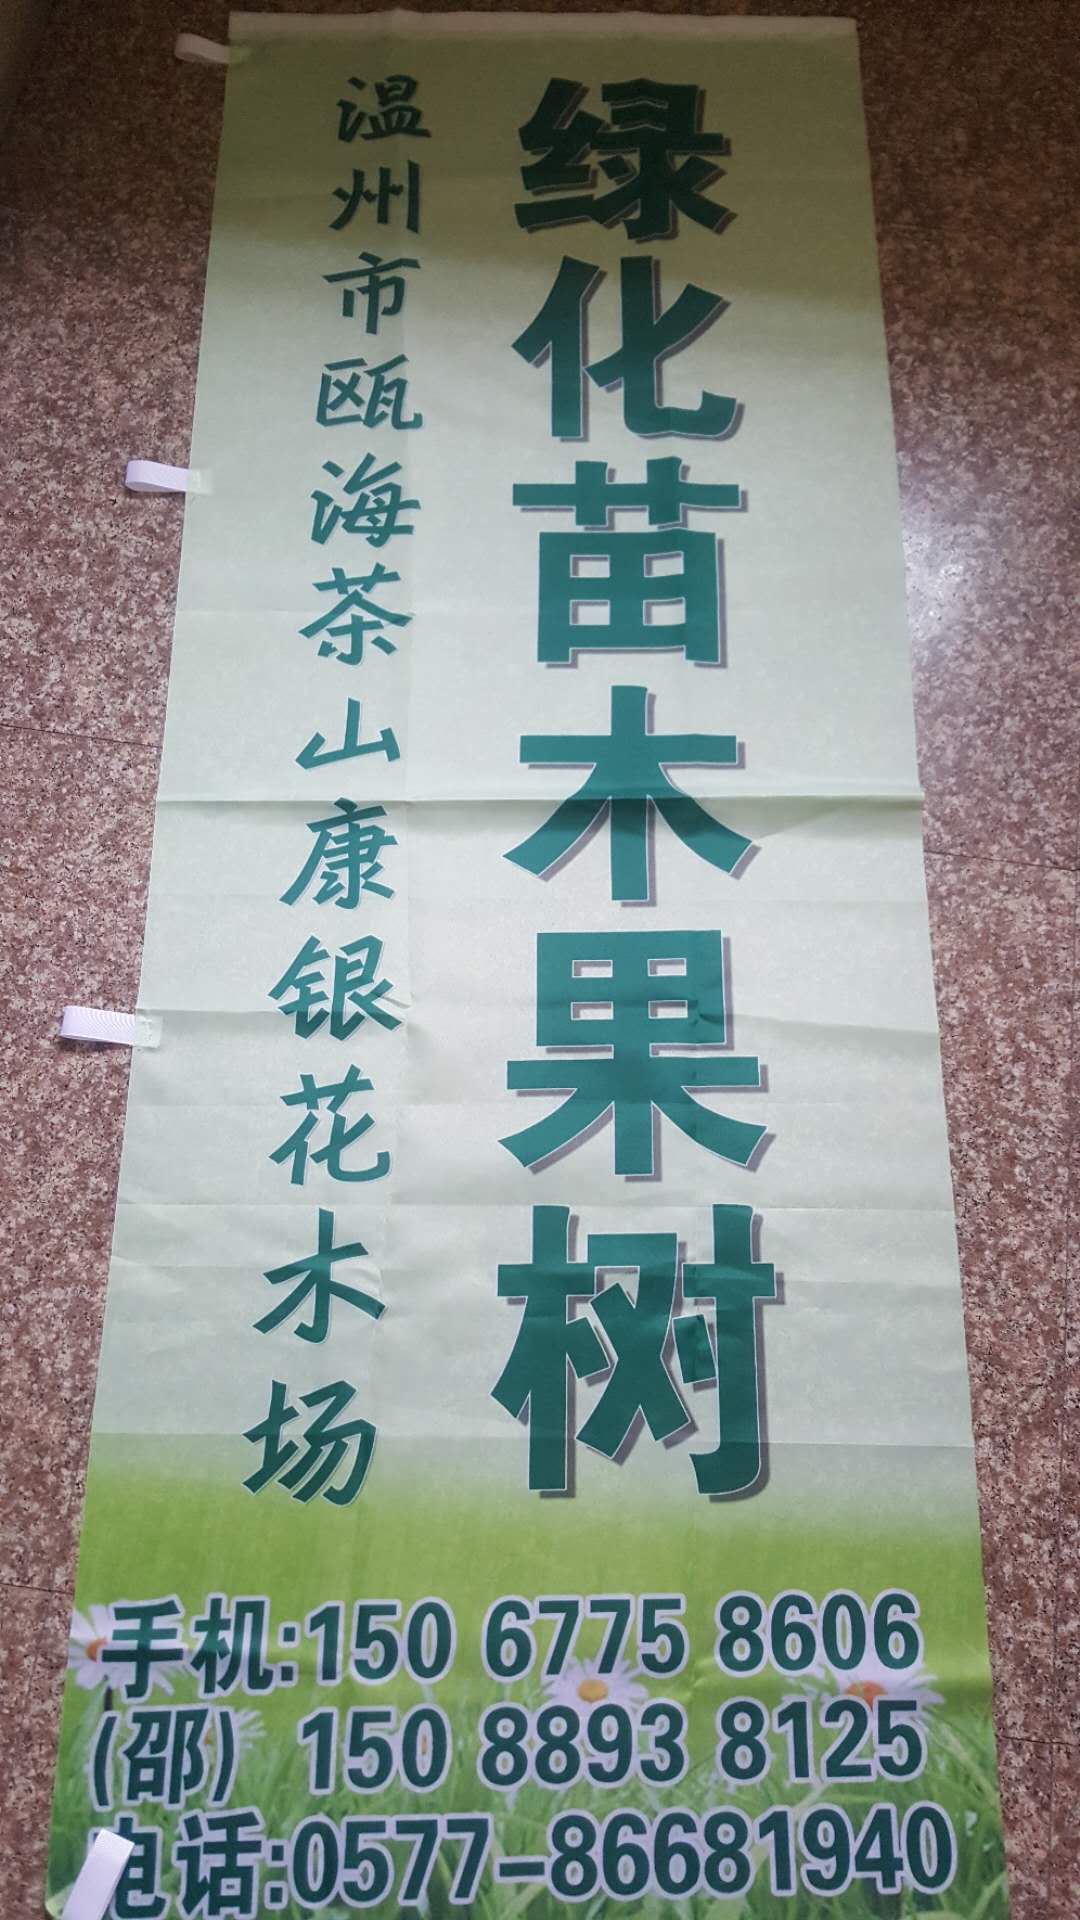 绿化苗木果树
温州市瓯海茶山康银花木场
手机:150 6775 8606
(邵) 150 8893 8125
电话:0577-86681940